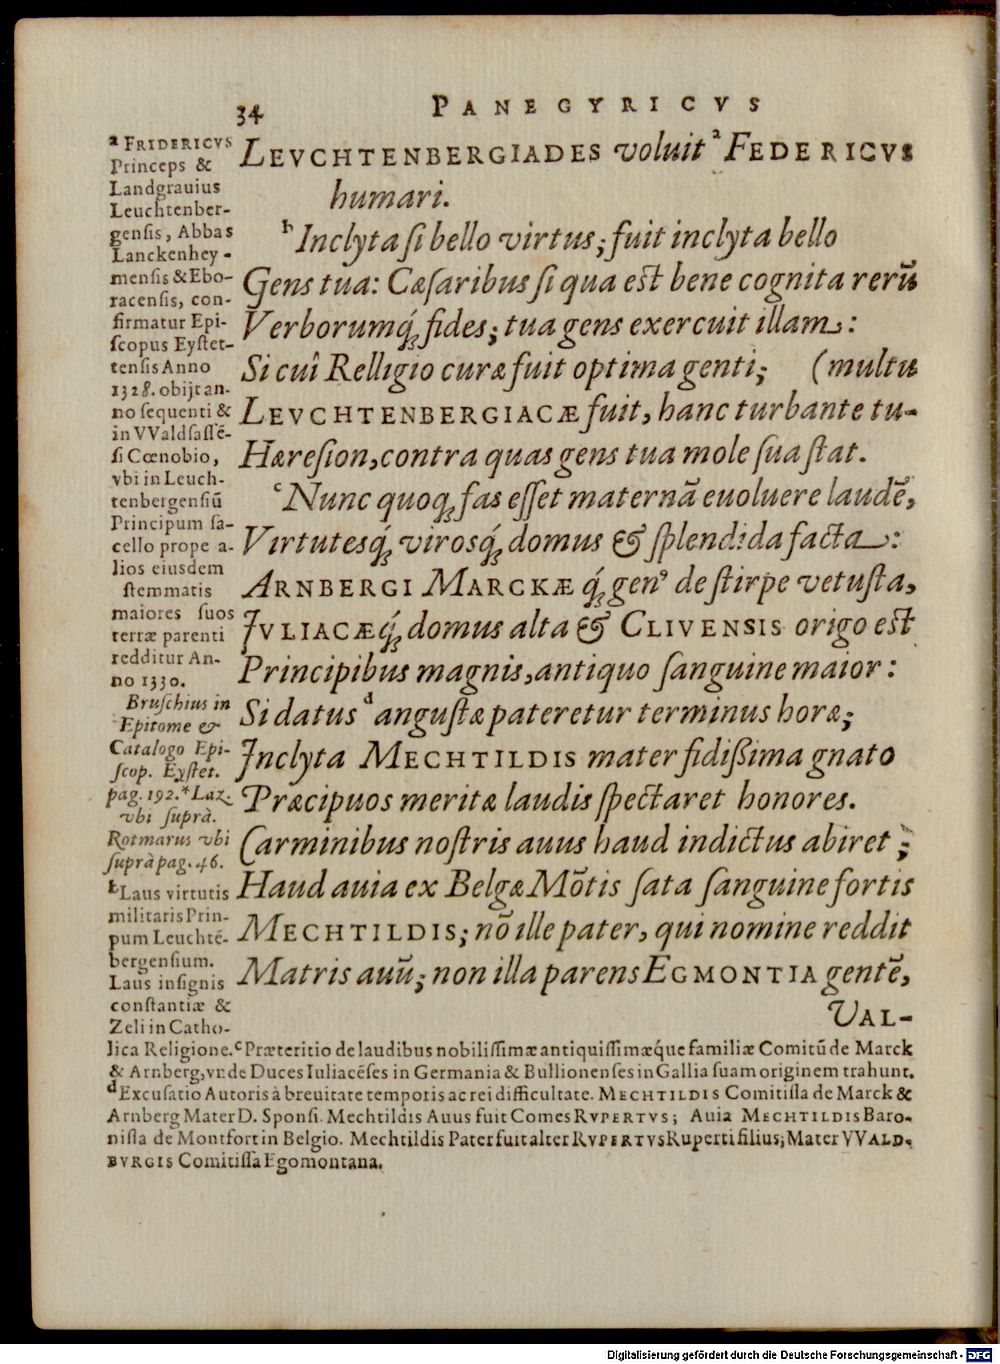 34
PANEGYRICVS
LEVCHTENBERGIADES voluit ᵃ FEDERICVS
humari.
ᵇ Inclyta si bello virtus; fuit inclyta bello
Gens tua: Cæsaribus si qua est bene cognita rerũ
Verborumq́; fides; tua gens exercuit illam:
Si cuî Relligio curæ fuit optima genti; (multu
LEVCHTENBERGIACÆ fuit, hanc turbante tu-
Hæresion, contra quas gens tua mole sua stat.
ᶜ Nunc quoq; fas esset maternã euoluere laudẽ,
Virtutesq́; virosq́; domus & splendida facta:
ARNBERGI MARCKÆ q́; genꝰ de stirpe vetusta,
IVLIACÆq́; domus alta & CLIVENSIS origo est
Principibus magnis, antiquo sanguine maior:
Si datus ᵈ angustæ pateretur terminus horæ;
Inclyta MECHTILDIS mater fidißima gnato
Præcipuos meritæ laudis spectaret honores.
Carminibus nostris auus haud indictus abiret;
Haud auia ex Belgæ Mõtis sata sanguine fortis
MECHTILDIS; nõ ille pater, qui nomine reddit
Matris auũ; non illa parens EGMONTIA gentẽ,
VAL-
ᵃ FRIDERICVS
Princeps &
Landgrauius
Leuchtenber-
gensis, Abbas
Lanckenhey-
mensis & Ebo-
racensis, con-
firmatur Epi-
scopus Eystet-
tensis Anno
1328. obijt an-
no sequenti &
in VValdsassẽ-
si Cœnobio,
vbi in Leuch-
tenbergensiũ
Principum sa-
cello prope a-
lios eiusdem
stemmatis
maiores suos
terræ parenti
redditur An-
no 1330.
Bruschius in
Epitome &
Catalogo Epi-
scop. Eystet.
pag. 192. * Laz.
vbi suprà.
Rotmarus vbi
suprà pag. 46.
ᵇ Laus virtutis
militaris Prin-
pum Leuchtẽ-
bergensium.
Laus insignis
constantiæ &
Zeli in Catho-
lica Religione. ᶜ Præteritio de laudibus nobilissimæ antiquissimæq́ue familiæ Comitũ de Marck
& Arnberg, vnde Duces Iuliacẽses in Germania & Bullionenses in Gallia suam originem trahunt.
ᵈ Excusatio Autoris à breuitate temporis ac rei difficultate. MECHTILDIS Comitissa de Marck &
Arnberg Mater D. Sponsi. Mechtildis Auus fuit Comes RVPERTVS; Auia MECHTILDIS Baro-
nissa de Montfort in Belgio. Mechtildis Pater fuit alter RVPERTVS Ruperti filius; Mater VVALD-
BVRGIS Comitissa Egomontana.
Digitalisierung gefördert durch die Deutsche Forschungsgemeinschaft - DFG